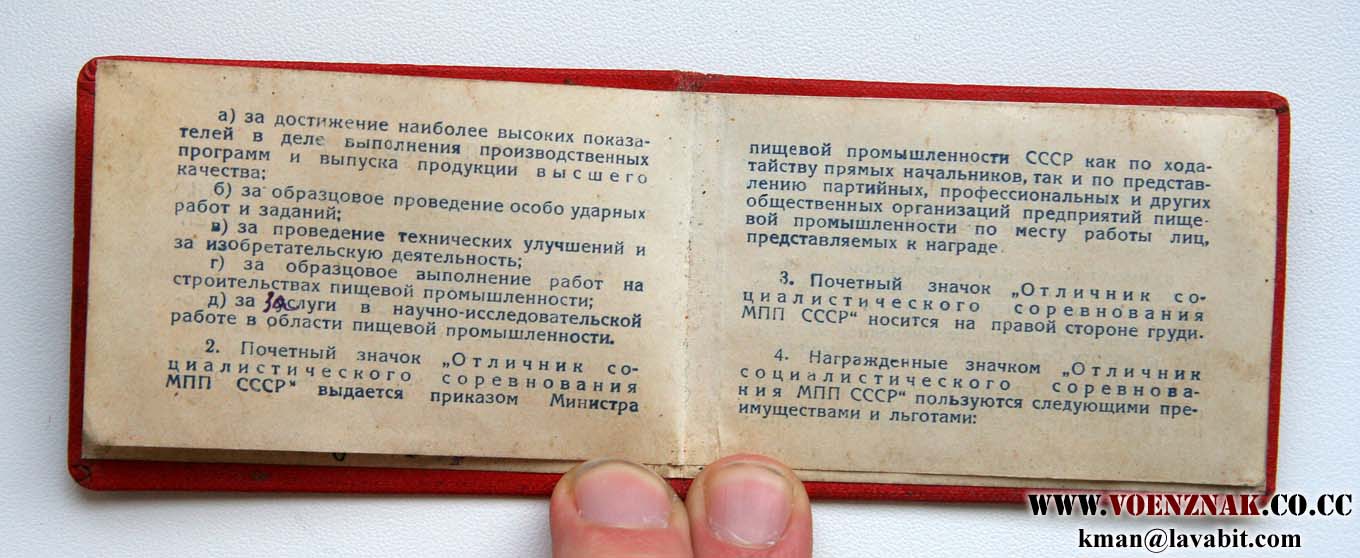 а) за достижение наиболее высоких показа-
телей в деле выполнения производственных
программ и выпуска продукции высшего
качества;
б) за образцовое проведение особо ударных
работ и заданий;
в) за проведение технических улучшений и
за изобретательскую деятельность;
г) за образцовое выполнение работ на
строительствах пищевой промышленности;
д) за заслуги в научно-исследовательской
работе в области пищевой промышленности.
2. Почетный значок „Отличник со-
циалистического соревнования
МПП СССР“ выдается приказом Министра
пищевой промышленности СССР как по хода-
тайству прямых начальников, так и по представ-
лению партийных, профессиональных и других
общественных организаций предприятий пище-
вой промышленности по месту работы лиц,
представляемых к награде.
3. Почетный значок „Отличник со-
циалистического соревнования
МПП СССР“ носится на правой стороне груди.
4. Награжденные значком „Отличник
социалистического соревнова-
ния МПП СССР“ пользуются следующими пре-
имуществами и льготами:
WWW.VOENZNAK.CO.CC
kman@lavabit.com